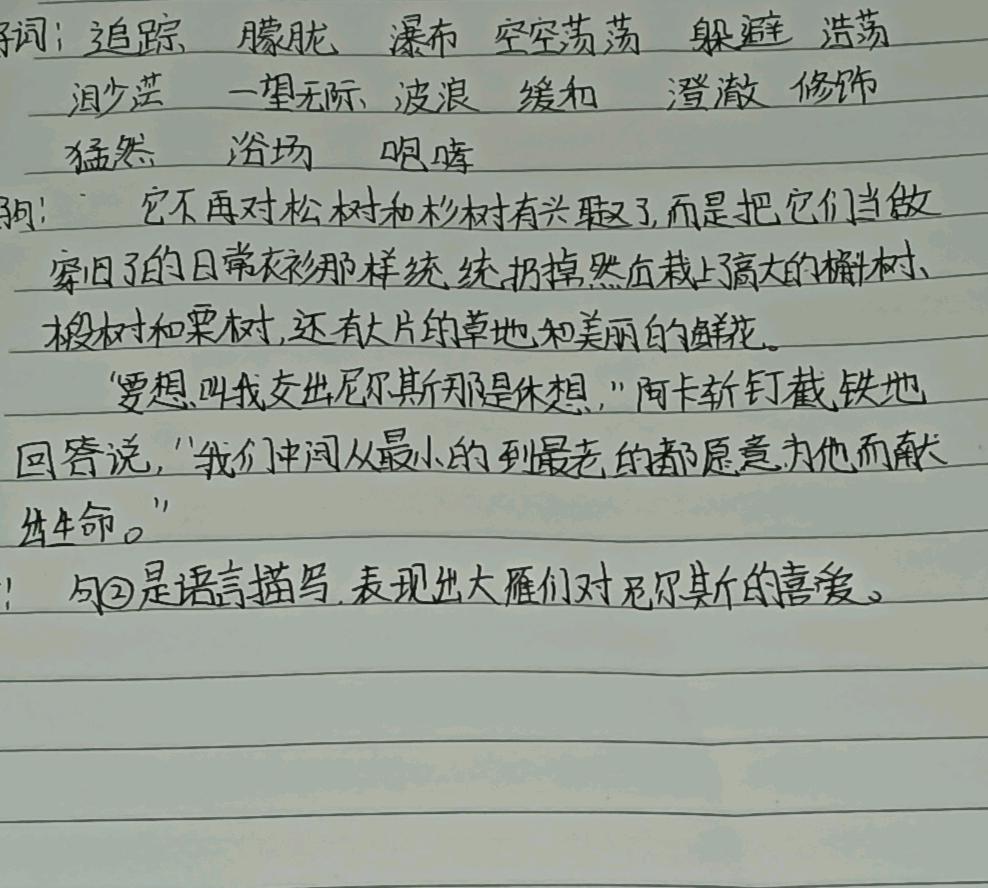 好词：追踪 朦胧 瀑布 空空荡荡 躲避 浩荡
一望无际、波浪 缓和 澄澈 修饰
猛然 浴场 咆哮
句：它不再对松树和杉树有兴趣了，而是把它们当做
穿旧了的日常衣衫那样统统扔掉然后栽上了高大的橡树、
椴树和栗树，还有大片的草地和美丽的鲜花。
“要想叫我交出尼尔斯那是休想，”阿卡斩钉截铁地
回答说，“我们中间从最小的到最老的都愿意为他而献
出生命。”
！句②是语言描写.表现出大雁们对尼尔斯的喜爱。